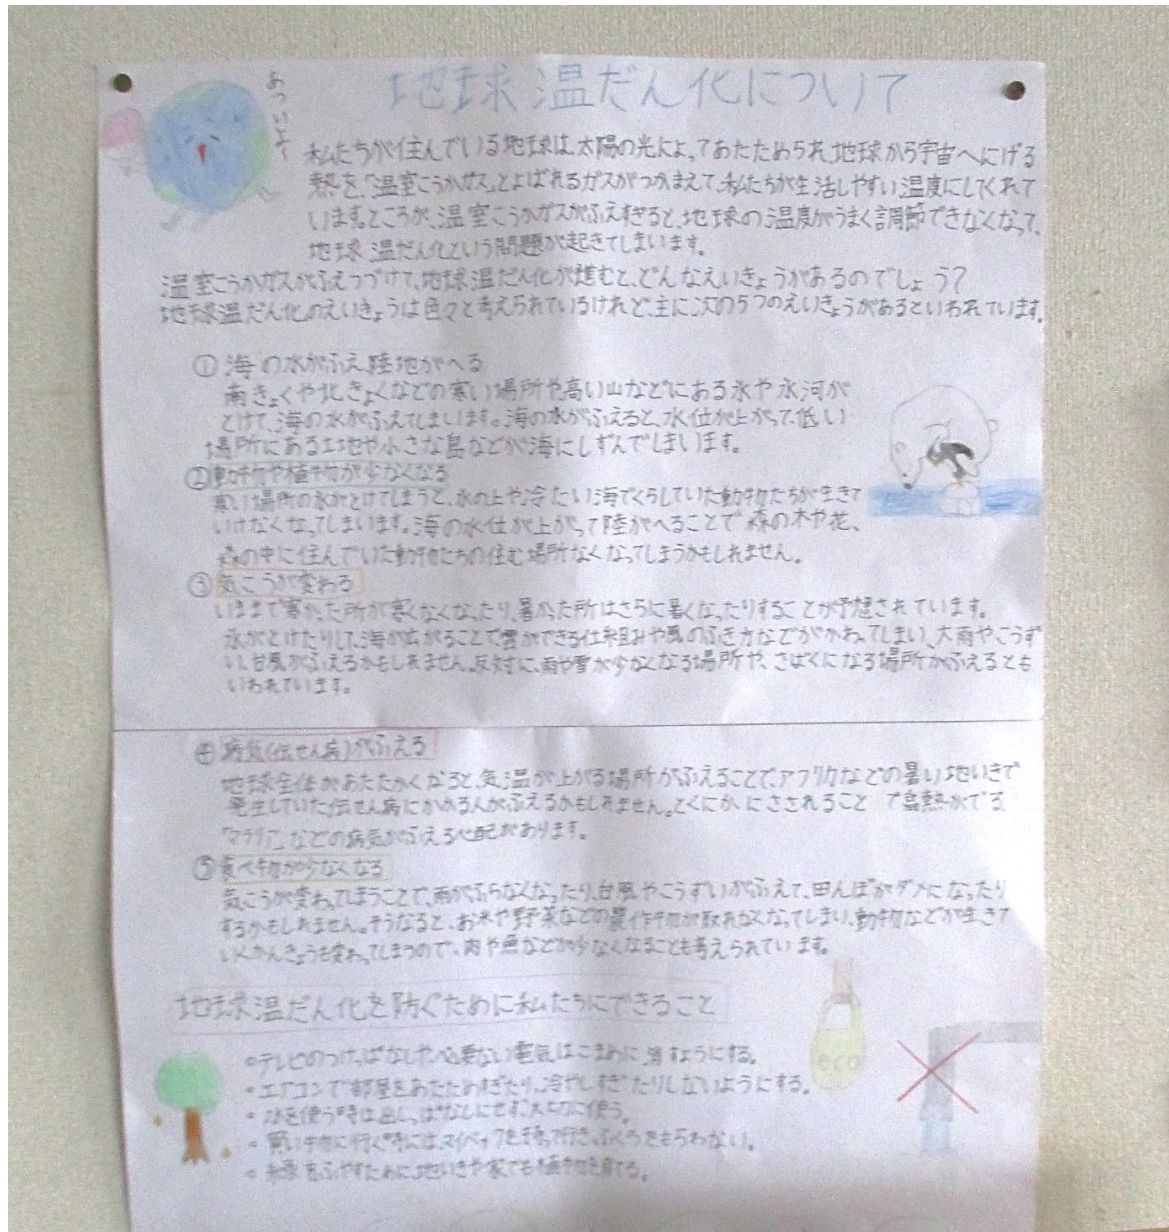 地球温だん化について
あついよ〜
私たちが住んでいる地球は、太陽の光によってあたためられ、地球から宇宙へにげる
熱を、「温室こうかガス」とよばれるガスがつかまえて、私たちが生活しやすい温度にしてくれて
います。ところが、温室こうかガスがふえすぎると、地球の温度がうまく調節できなくなって、
地球温だん化という問題が起きてしまいます。
温室こうかガスがふえつづけて、地球温だん化が進むと、どんなえいきょうがあるのでしょう?
地球温だん化のえいきょうは色々と考えられているけれど、主に次の5つのえいきょうがあるといわれています。
①海の水がふえ陸地がへる
南きょくや北きょくなどの寒い場所や高い山などにある氷や氷河が
とけて、海の水がふえてしまいます。海の水がふえると、水位が上がって、低い
場所にある土地や小さな島などが海にしずんでしまいます。
②動物や植物が少なくなる
寒い場所の氷がとけてしまうと、氷の上や冷たい海でくらしていた動物たちが生きて
いけなくなってしまいます。海の水位が上がって陸がへることで森の木や花、
森の中に住んでいた動物たちの住む場所なくなってしまうかもしれません。
③気こうが変わる
いままで寒かった所が寒くなくなったり、暑かった所はさらに暑くなったりすることが予想されています。
氷がとけたりして、海が広がることで雲ができる仕組みや風のふき方などがかわってしまい、大雨やこうず
い、台風がふえるかもしれません。反対に、雨や雪が少なくなる場所や、さばくになる場所がふえるとも
いわれています。
④病気(伝せん病)がふえる
地球全体があたたかくなると、気温が上がる場所がふえることで、アフリカなどの暑い地いきで
発生していた伝せん病にかかる人がふえるかもしれません。とくにかにさされることで高熱がでる
「マラリア」などの病気がふえる心配があります。
⑤食べ物が少なくなる
気こうが変わってしまうことで、雨がふらなくなったり、台風やこうずいがふえて、田んぼがダメになったり
するかもしれません。そうなると、お米や野菜などの農作物が取れなくなってしまい、動物などが生きて
いくかんきょうも変わってしまうので、肉や魚などが少なくなることも考えられています。
地球温だん化を防ぐために私たちにできること
eco
•テレビのつけっぱなしや必要ない電気はこまめに消すようにする。
•エアコンで部屋をあたためすぎたり、冷やしすぎたりしないようにする。
•水を使う時は出しっぱなしにせず大切に使う。
•買い物に行く時には、マイバッグを持って行き、ふくろをもらわない。
•緑をふやすために、地いきや家でも植物を育てる。